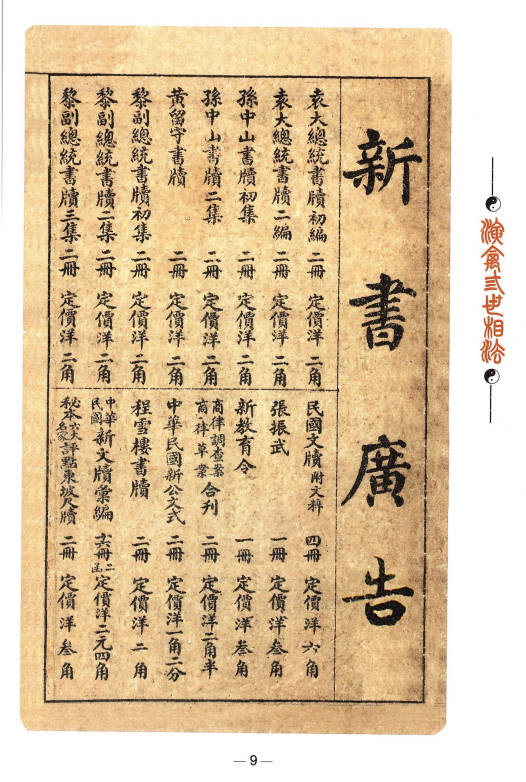 新書廣告
袁大總統書牘初編 二冊 定價洋 二角
袁大總統書牘二編 二冊 定價洋 二角
孫中山書牘初集 二冊 定價洋 二角
孫中山書牘二集 二冊 定價洋 二角
黃留守書牘 二冊 定價洋 二角
黎副總統書牘初集 二冊 定價洋 二角
黎副總統書牘二集 二冊 定價洋 二角
黎副總統書牘三集 二冊 定價洋 二角
民國文牘附文粹 四冊 定價洋 六角
張振武 一冊 定價洋 叁角
新教育令 一冊 定價洋 叁角
商律調查案商律草案合刊 二冊 定價洋二角半
中華民國新公文式 二冊 定價洋一角二分
程雪樓書牘 二冊 定價洋 二角
中華民國新文牘彙編 十六冊二函 定價洋二元四角
秘本六大家評點東坡尺牘 二冊 定價洋 叁角
演禽三世相法
—9—